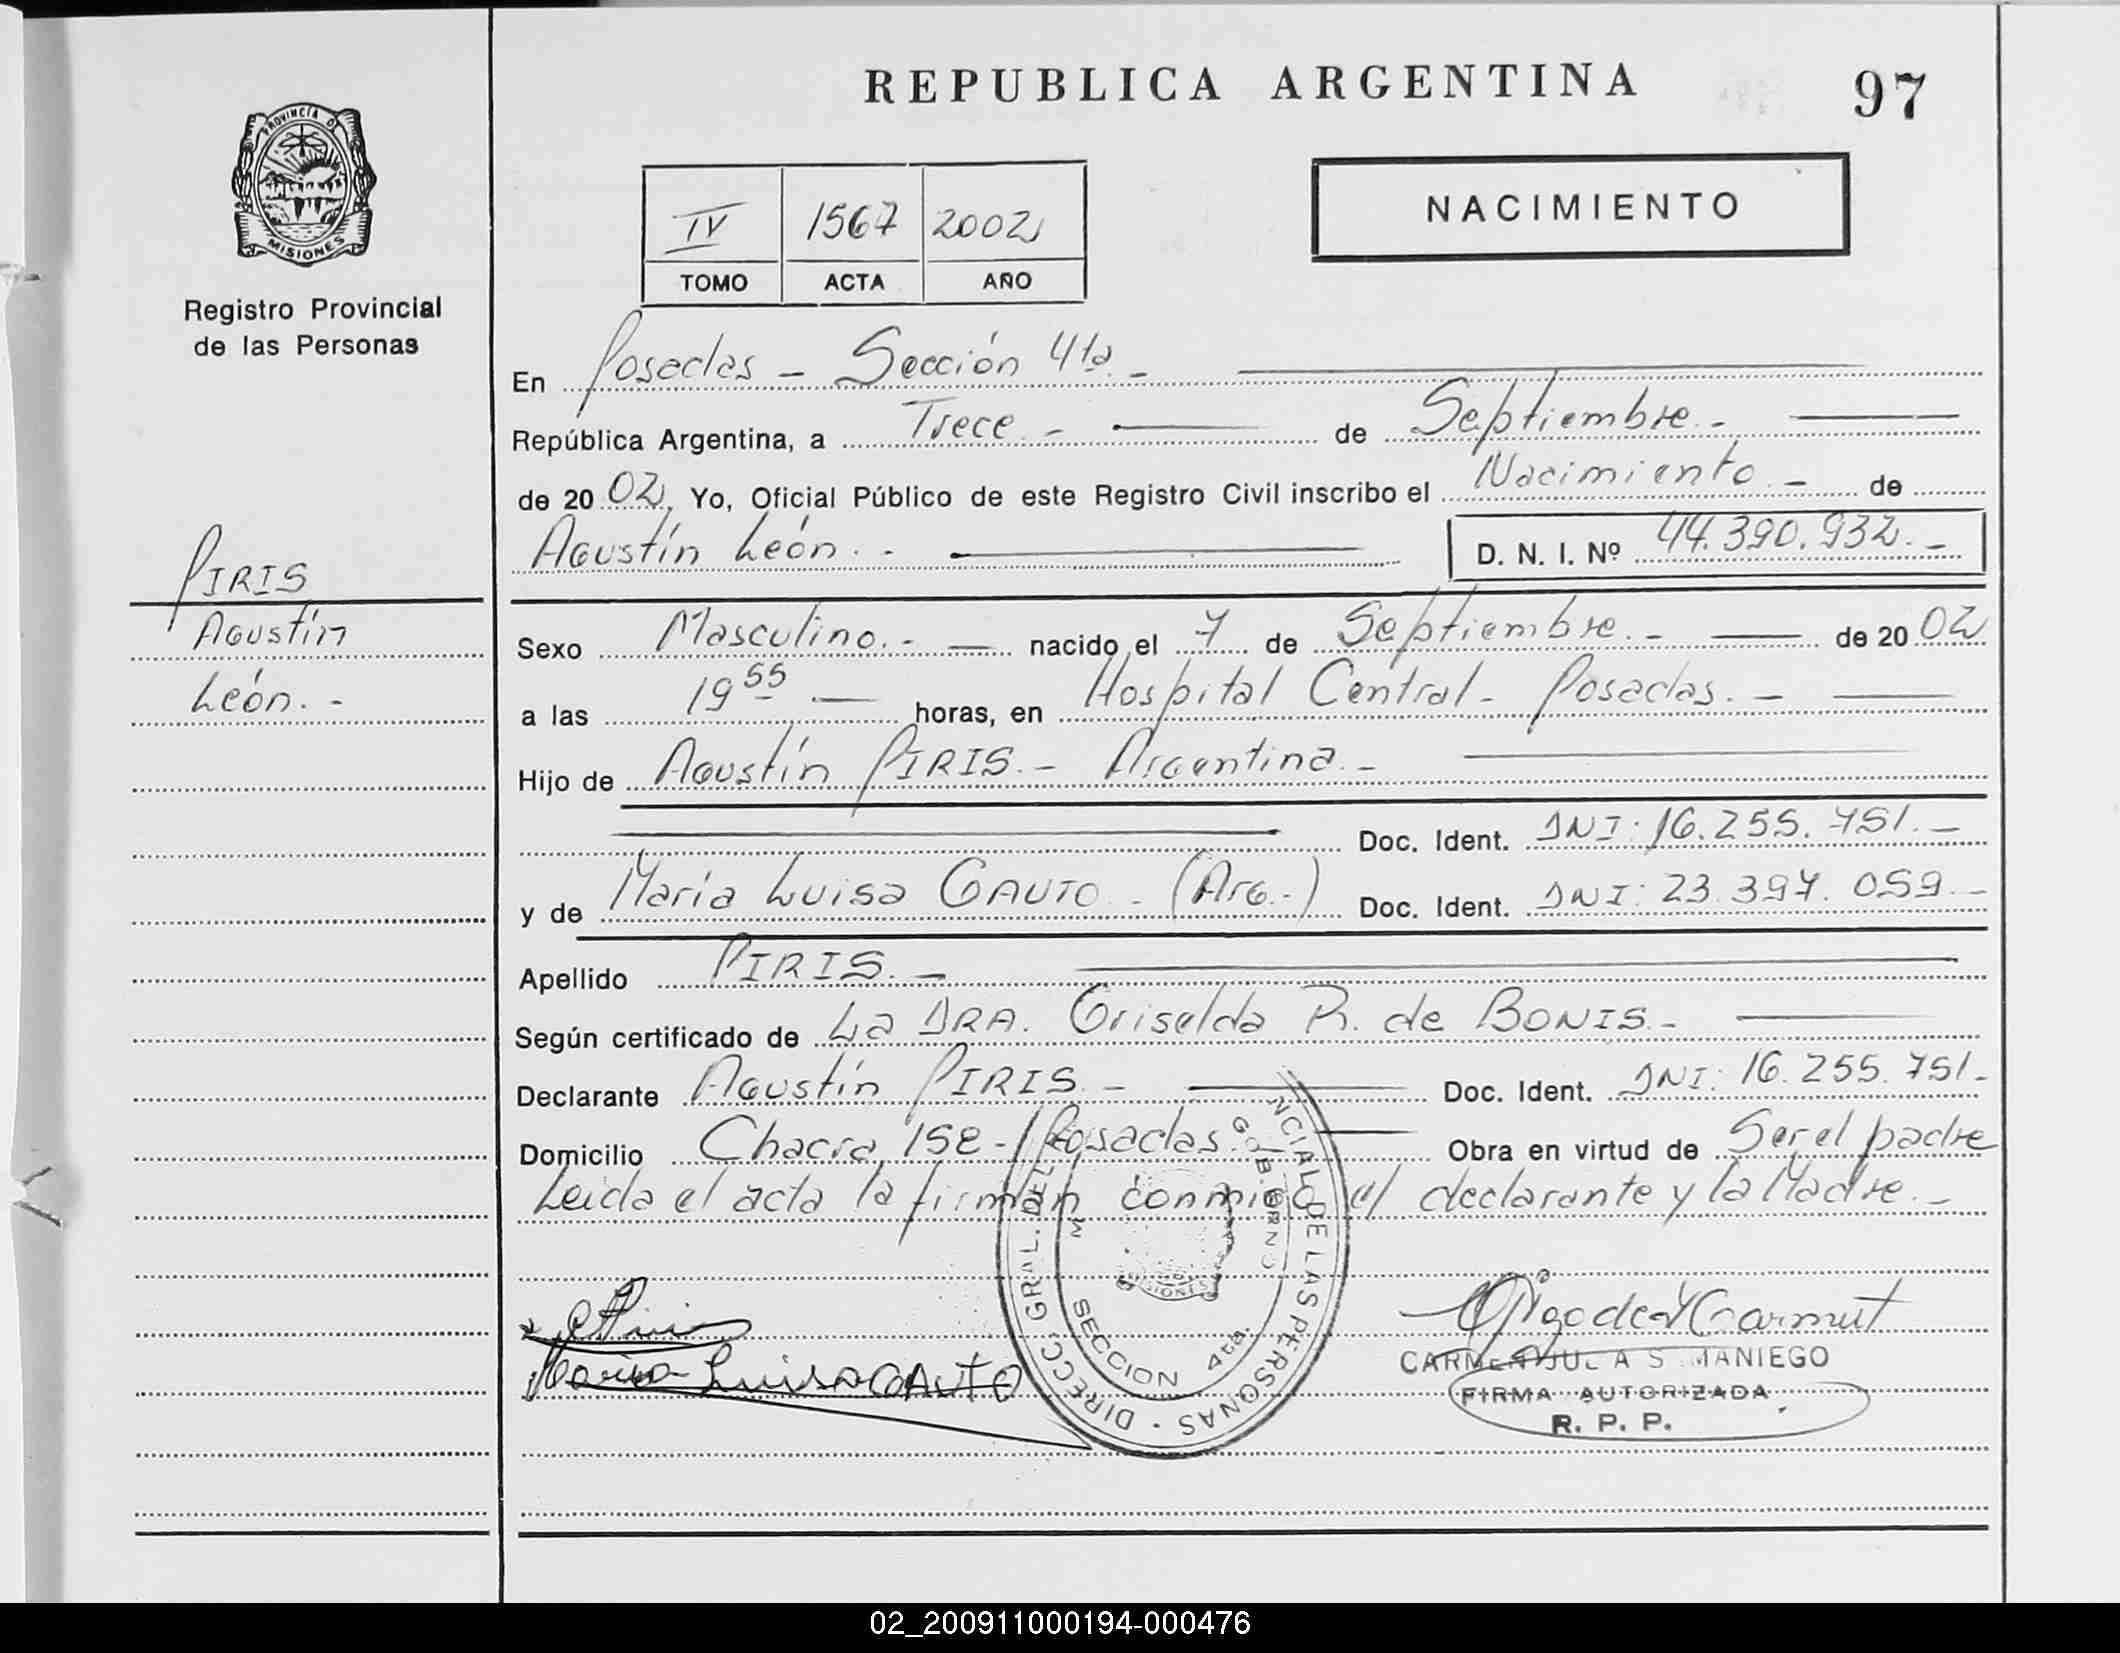 REPUBLICA ARGENTINA
97
PROVINCIA DE
MISIONES
Registro Provincial
de las Personas
NACIMIENTO
IV 1567 2002
TOMO ACTA AÑO
En Posadas - Sección 4ta. -
República Argentina, a Trece. - de Septiembre. -
de 20 02, Yo, Oficial Público de este Registro Civil inscribo el Nacimiento. - de
Agustín León. - D. N. I. Nº 44.390.932. -
PIRIS
Agustín
León. -
Sexo Masculino. - nacido el 7 de Septiembre. - de 20 02
a las 19 55 horas, en Hospital Central - Posadas. -
Hijo de Agustín PIRIS. - Argentina. -
Doc. Ident. DNI: 16.255.751. -
y de María Luisa GAUTO. - (Arg.-) Doc. Ident. DNI: 23.397.059. -
Apellido PIRIS. -
Según certificado de La DRA. Griselda R. de BONIS. -
Declarante Agustín PIRIS. - Doc. Ident. DNI: 16.255.751. -
Domicilio Chacra 152 - Posadas. Obra en virtud de Ser el padre
Leida el acta la firman conmigo el declarante y la Madre. -
Maria Luisa GAUTO
DIRECC. GRAL. DEL NCIAL DE LAS PERSONAS
SECCION 4ta.
FIRMA AUTORIZADA
R. P. P.
02_200911000194-000476